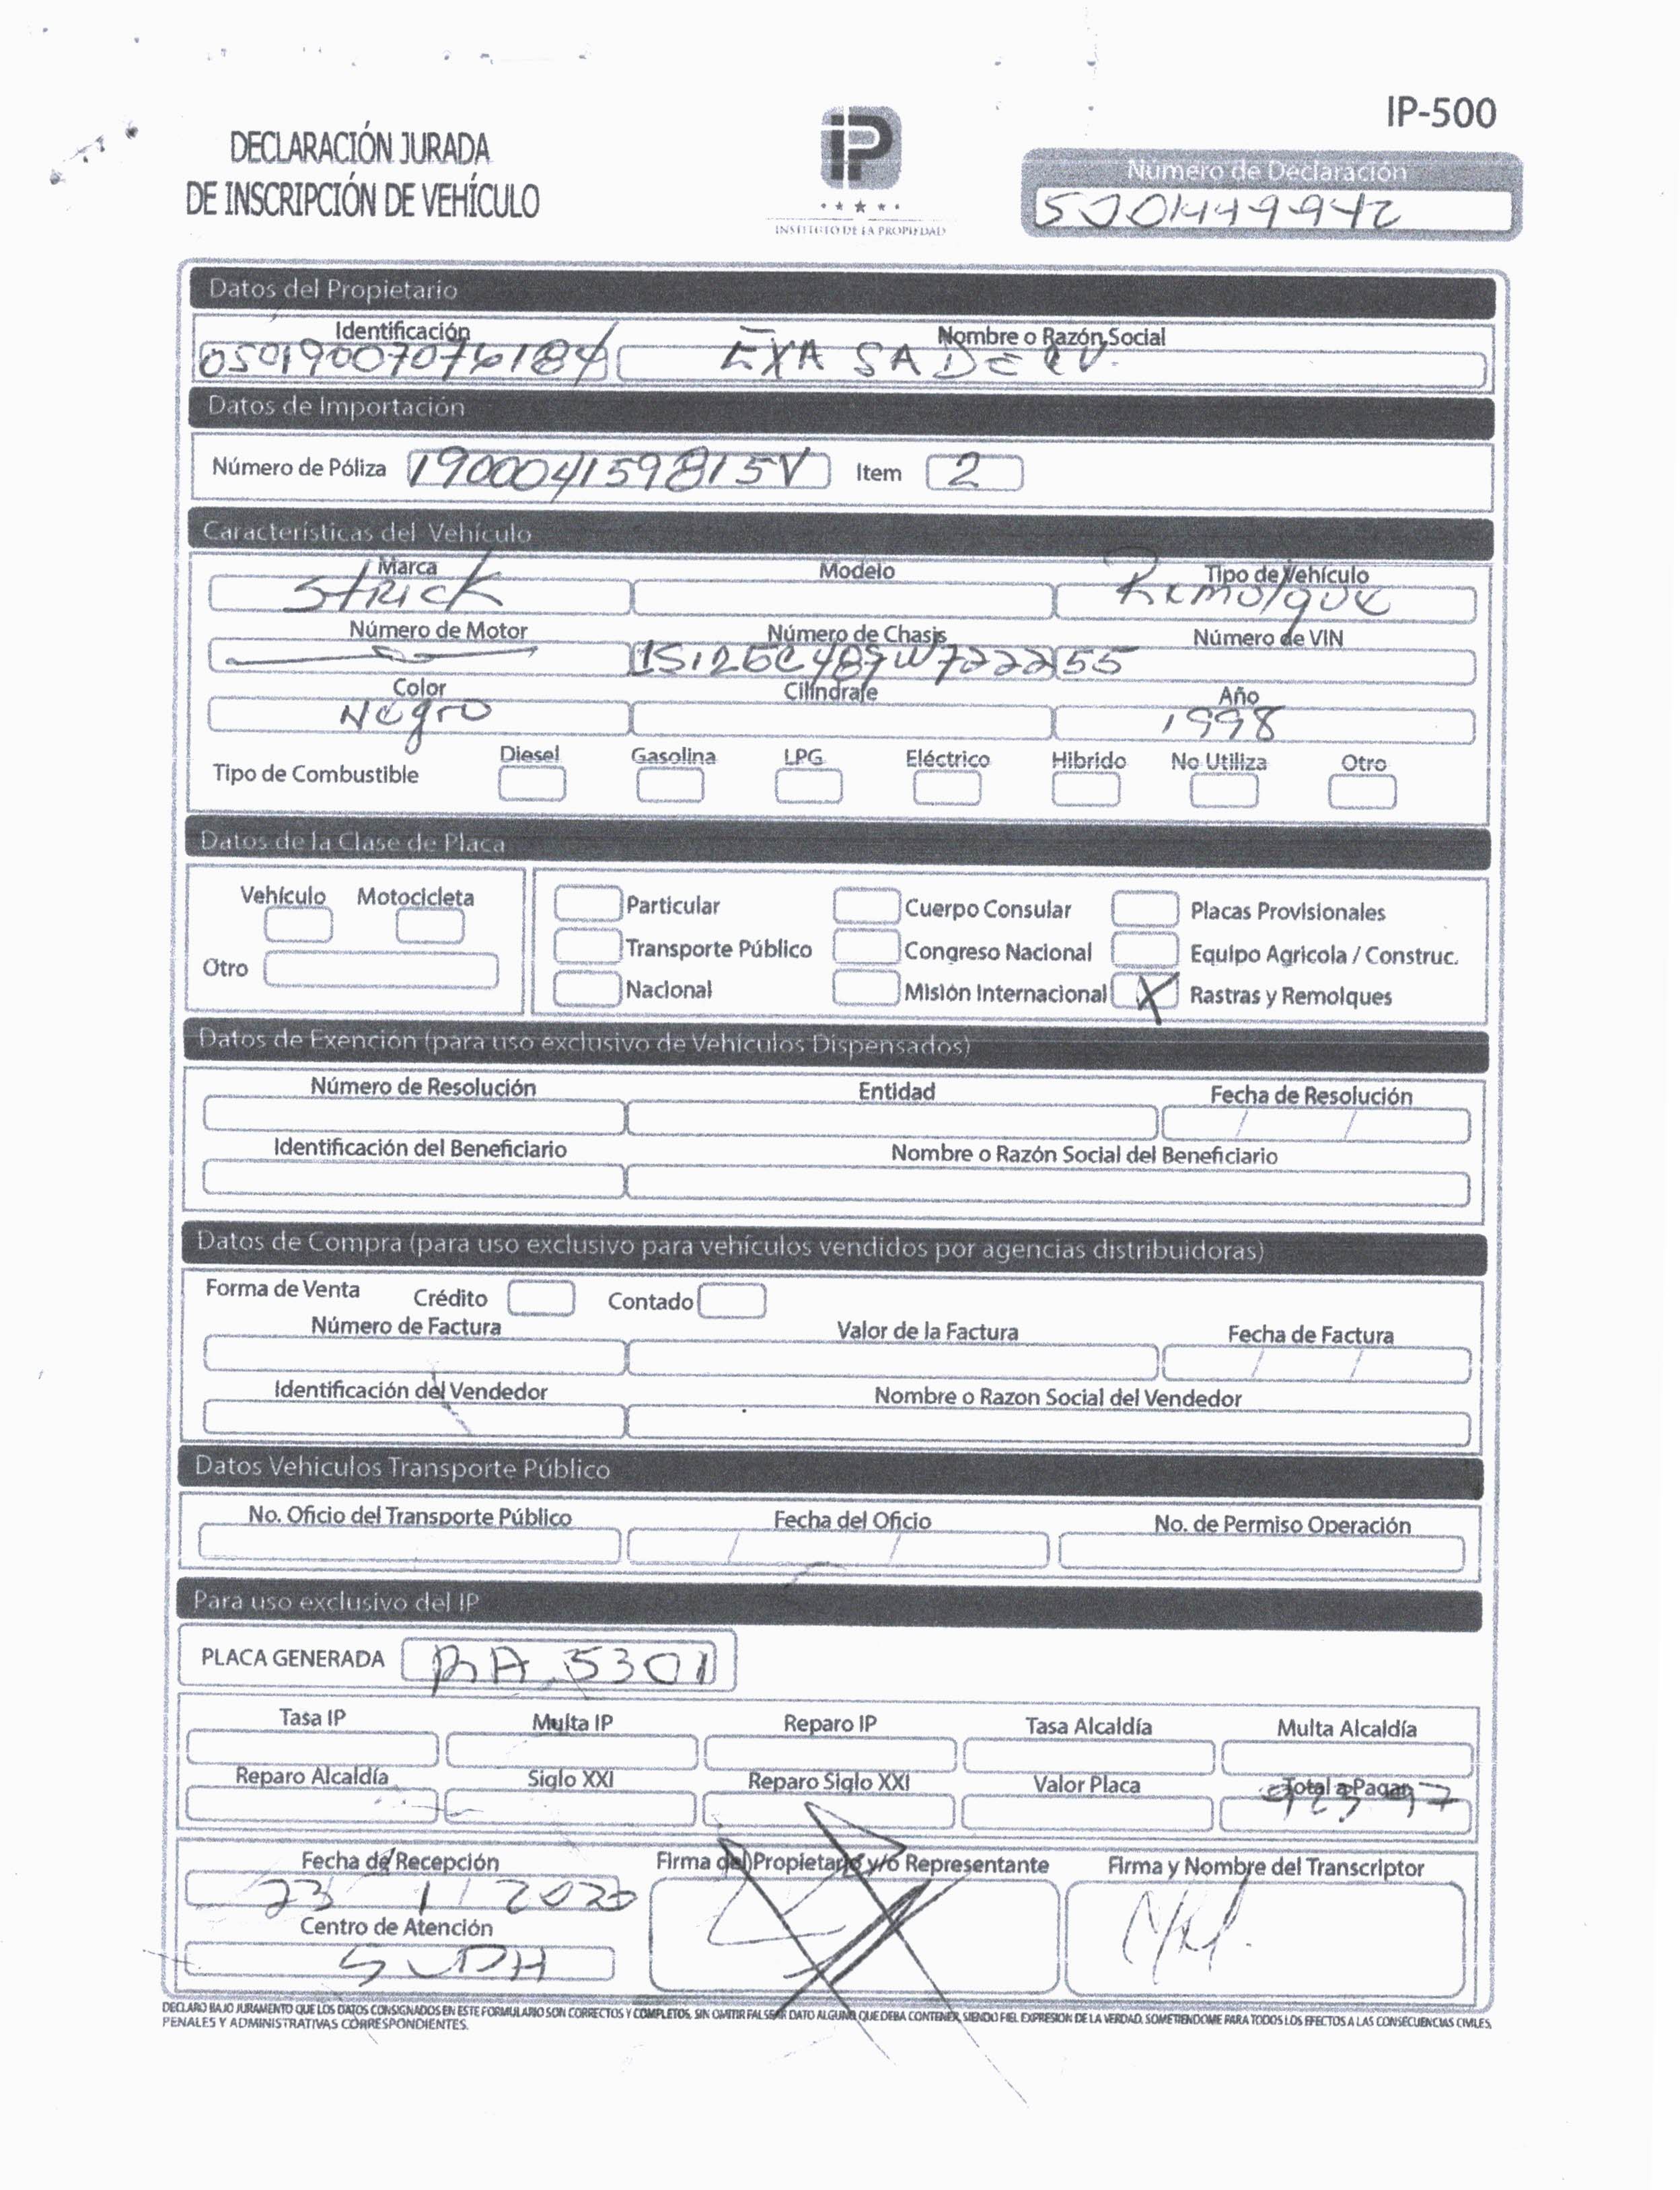 IP-500
DECLARACIÓN JURADA
DE INSCRIPCIÓN DE VEHÍCULO
IP
INSTITUTO DE LA PROPIEDAD
Número de Declaración
Datos del Propietario
Identificación Nombre o Razón Social
05019007076184 EXA SA DE CV.
Datos de Importación
Número de Póliza 190004159815V Item 2
Características del Vehículo
Marca Modelo Tipo de Vehículo
Strick Remolque
Número de Motor Número de Chasis Número de VIN
Color Cilindraje Año
Negro 1998
Diesel Gasolina LPG Eléctrico Hibrido No Utiliza Otro
Tipo de Combustible
Datos de la Clase de Placa
Vehículo Motocicleta
Otro
Particular Cuerpo Consular Placas Provisionales
Transporte Público Congreso Nacional Equipo Agricola / Construc.
Nacional Misión Internacional X Rastras y Remolques
Datos de Exención (para uso exclusivo de Vehículos Dispensados)
Número de Resolución Entidad Fecha de Resolución
/ /
Identificación del Beneficiario Nombre o Razón Social del Beneficiario
Datos de Compra (para uso exclusivo para vehículos vendidos por agencias distribuidoras)
Forma de Venta Crédito Contado
Número de Factura Valor de la Factura Fecha de Factura
/ /
Identificación del Vendedor Nombre o Razon Social del Vendedor
Datos Vehículos Transporte Público
No. Oficio del Transporte Público Fecha del Oficio No. de Permiso Operación
/ /
Para uso exclusivo del IP
PLACA GENERADA RA 5301
Tasa IP Multa IP Reparo IP Tasa Alcaldía Multa Alcaldía
Reparo Alcaldía Siglo XXI Reparo Siglo XXI Valor Placa Total a Pagar
Fecha de Recepción Firma del Propietario y/o Representante Firma y Nombre del Transcriptor
23 / 1 / 2020
Centro de Atención
DECLARO BAJO JURAMENTO QUE LOS DATOS CONSIGNADOS EN ESTE FORMULARIO SON CORRECTOS Y COMPLETOS, SIN OMITIR FALSEAR DATO ALGUNO QUE DEBA CONTENER, SIENDO FIEL EXPRESION DE LA VERDAD. SOMETIENDOME PARA TODOS LOS EFECTOS A LAS CONSECUENCIAS CIVILES,
PENALES Y ADMINISTRATIVAS CORRESPONDIENTES.